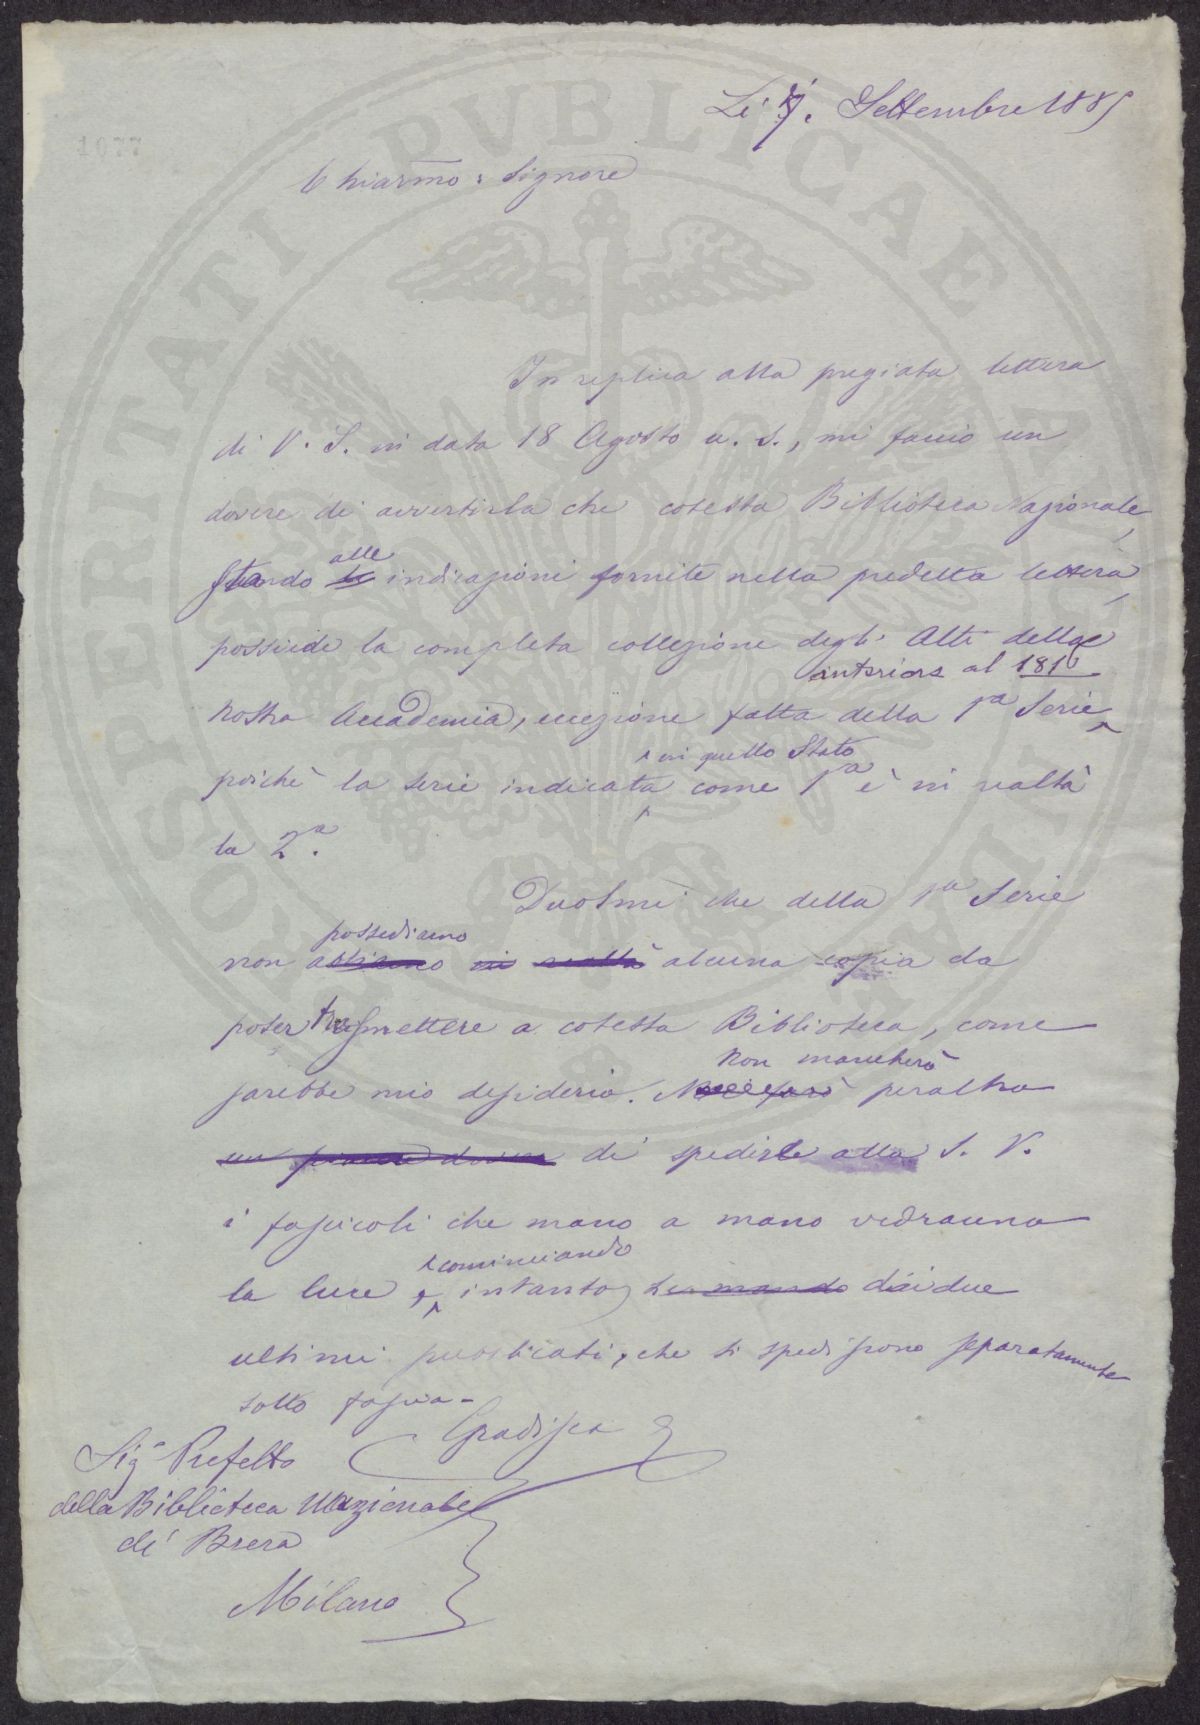 1077
Li 7. Settembre 1885
Chiarmo: Signore
In replica alla pregiata lettera
di V. S. in data 18 Agosto u. s., mi faccio un
dovere di avvertirla che cotesta Biblioteca Nazionale,
stando alle indicazioni fornite nella predetta lettera,
possiede la completa collezione degli Atti della
anteriore al 181
nostra Accademia, eccezione fatta della 1a Serie
in quello Stato
poichè la serie indicata come 1a è in realtà
la 2a.
Duolmi che della 1a Serie
possediamo
non abbiamo in realtà alcuna copia da
poter trasmettere a cotesta Biblioteca, come
non mancherò
sarebbe mio desiderio. peraltro
un dovere di spedirle alla S. V.
i fascicoli che mano a mano vedranno
cominciando
la luce, intanto, dai due
ultimi pubblicati, che si spediscono separatamente
sotto fascia -
Gradisca
Sigr Prefetto
della Biblioteca Nazionale
di Brera
Milano